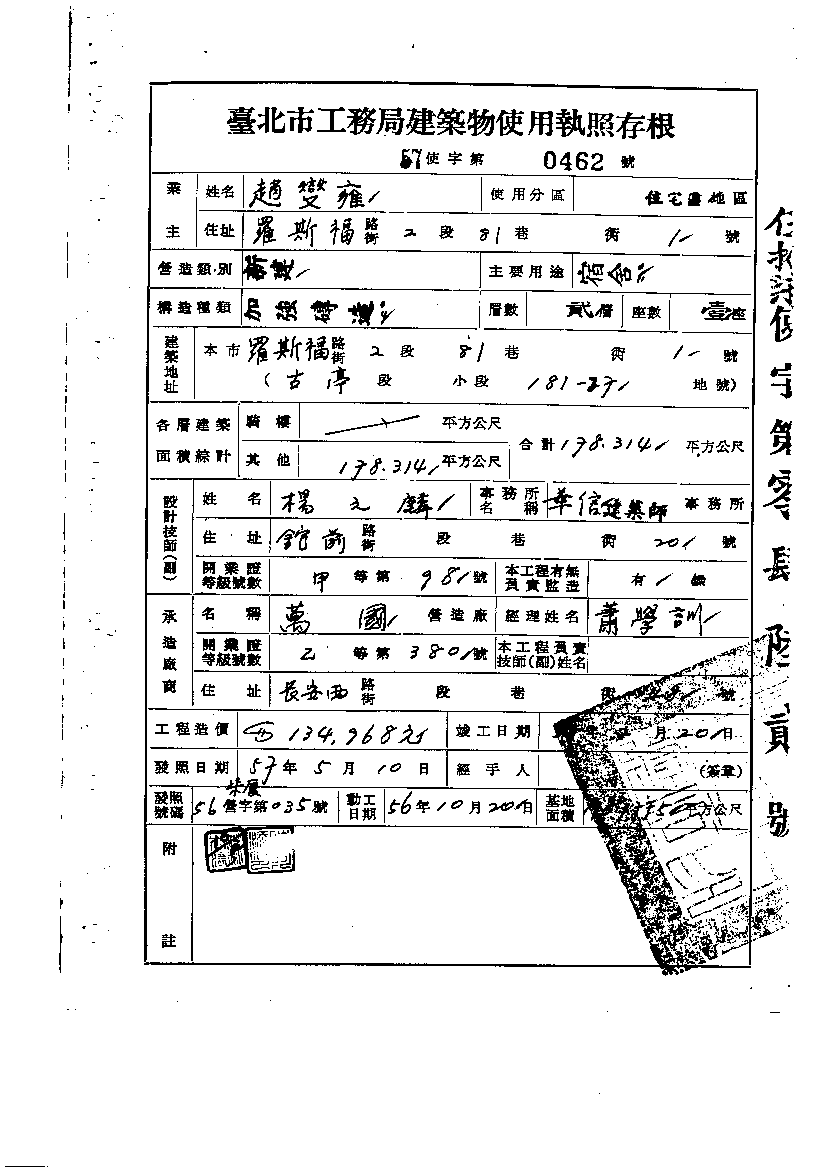 臺北市工務局建築物使用執照存根
57使字第 0462 號
業主 姓名 趙燮雍 使用分區 住宅區地區
住址 羅斯福路街 2 段 81 巷 衖 1 號
營造類別 新建 主要用途 宿舍
構造種類 加強磚造 層數 貳層 座數 壹座
建築地址 本市 羅斯福路街 2 段 81 巷 衖 1 號
(古亭 段 小段 181-27 地號)
各層建築面積綜計 騎樓 平方公尺 合計 178.314 平方公尺
其他 178.314 平方公尺
設計技師(副) 姓名 楊元麟 事務所名稱 華信建築師 事務所
住址 館前路街 段 巷 衖 20 號
開業證等級號數 甲 等第 98 號 本工程有無負責監造 有
承造廠商 名稱 萬國 營造廠 經理姓名 蕭學訓
開業證等級號數 乙 等第 380 號 本工程負責技師(副)姓名
住址 長安西路街 段 巷 衖 號
工程造價 134,968元 竣工日期 年 月 20 日
發照日期 57年 5 月 10 日 經手人 (簽章)
發照號碼 56營字第035號 動工日期 56年10月20日 基地面積 平方公尺
附註
伍拾柒使字第零肆陸貳號